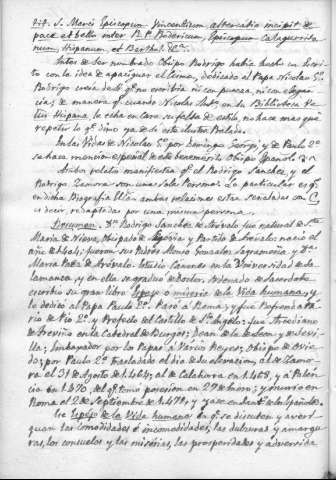 S. Marci Episcopum Vincentium altercatio incipit de
pace et bello inter B. P. Rodericum, Episcopum Calaguerrita-
num Hispanum, et Barthol.
Antes de ser nombrado Obispo Rodrigo había hecho un Escri-
to con la idea de apaciguar el Cisma, dedicado al Papa Nicolao 5º.
Rodrigo creía de S. q.e no escribía ni con pureza, ni con elegan-
cia, de manera q.e cuando Nicolas Antº. en su Biblioteca Ve-
tus Hispana le echa en cara su falta de estilo, no hace mas que
repetir lo q.e dijo ya de si este ilustre Prelado.
En las Vidas de Nicolao 5º por Domingo Georgi, y de Paulo 2º
se hace mencion especial de este benemerito Obispo Español
Arriba relatio manifiesta q.e el Rodrigo Sanchez, y el
Rodrigo Zamora son una sola Persona. Lo particular es q.e
en dicha Biografia Uni.ª ambas relaciones estan señaladas con C,
es decir, redactadas por una misma persona.
Documen. Dn Rodrigo Sanchez de Arévalo fue natural de Sta
Maria de Nieva, Obispado de Segovia y Partido de Arévalo: nació el
año de 1404; fueron sus Padres Alonso Gonzalez Sagrameña, y Da
Maria Rodz de Arévalo. Estudió Canones en la Universidad de Sa-
lamanca, y en ella se graduó de Doctor. Ordenado de Sacerdote
escribió su gran libro Espejo o mirror de la Vida humana, y
lo dedicó al Papa Paulo 2º. Pasó a Roma, y fue Profesor
rio de Pio 2º y Prefecto del Castillo de S. Angelo: fue Arcediano
de Treviño en la Catedral de Burgos; Dean de la de Leon y de Sevi-
lla; Embajador por los Papas a Varios Reyes; Obispo de Ovie-
do; por Paulo 2º trasladado el dia de su elevacion, al de Zamo-
ra el 31 de Agosto de 1464; al de Calahorra en 1467, y a Palen-
cia en 1470 del q.e tomó posesion en 29 de Enero; y murió en
Roma el 2 de Septiembre de 1470, y yace en
Ese Espejo de la Vida humana en q.e se discuten y averi-
guan las comodidades e incomodidades, las dulzuras y amargu-
ras, los consuelos y las miserias, las prosperidades y adversida